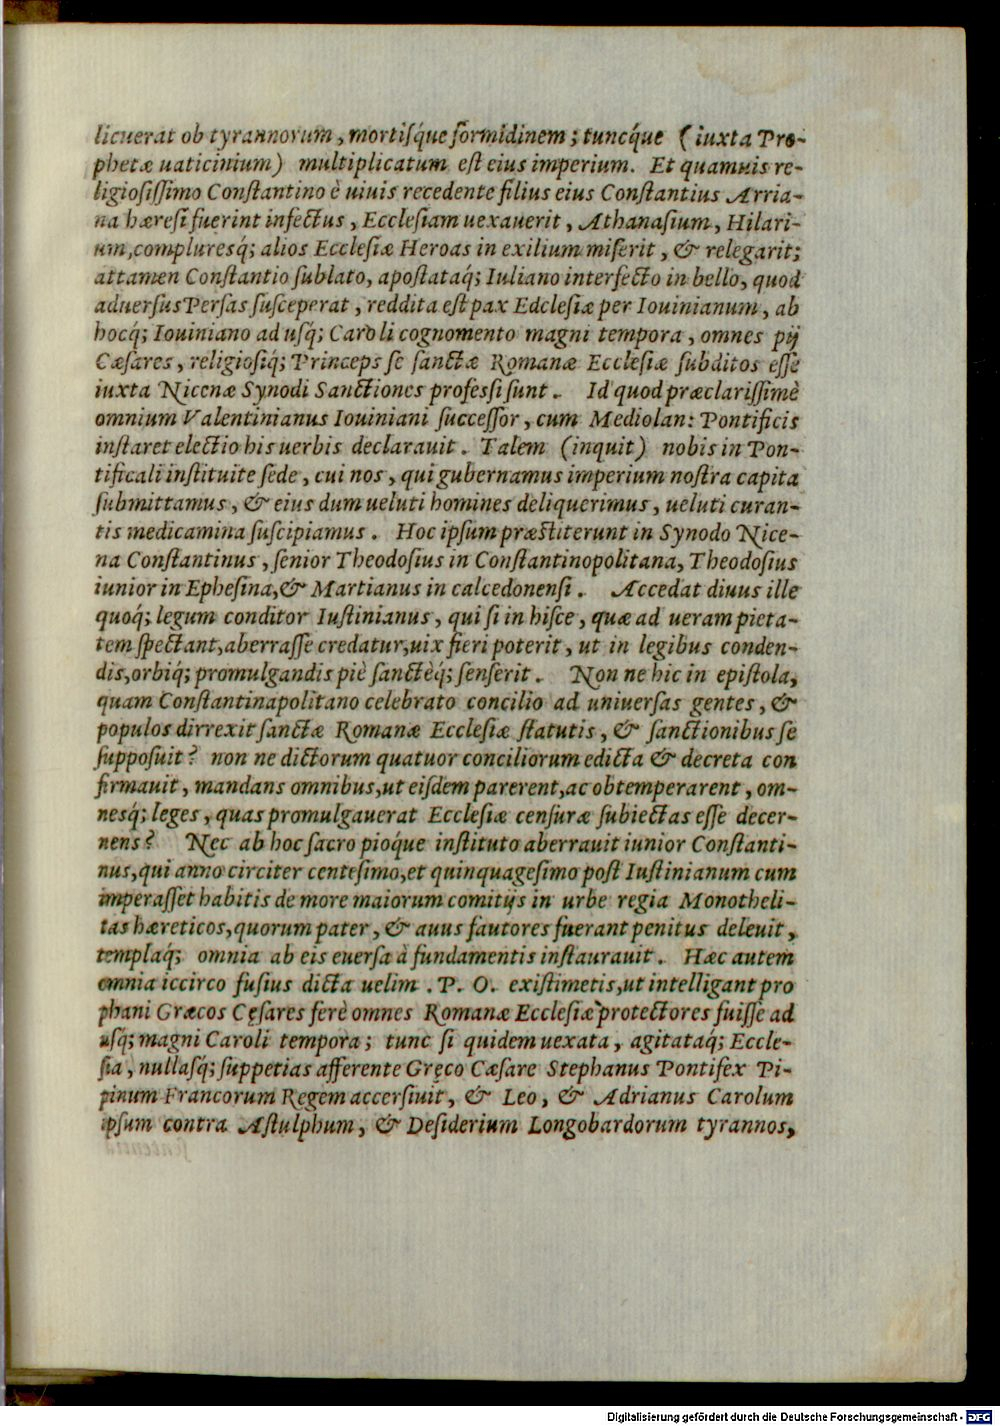 licuerat ob tyrannorum, mortisq́ue formidinem; tuncq́ue (iuxta Pro-
phetæ uaticinium) multiplicatum est eius imperium. Et quamuis re-
ligiosissimo Constantino è uiuis recedente filius eius Constantius Arria-
na hæresi fuerint infectus, Ecclesiam uexauerit, Athanasium, Hilari-
um, complures q́; alios Ecclesiæ Heroas in exilium miserit, & relegarit;
attamen Constantio sublato, apostataq́; Iuliano interfecto in bello, quod
aduersus Persas susceperat, reddita est pax Edclesiæ per Iouinianum, ab
hocq́; Iouiniano ad usq́; Caroli cognomento magni tempora, omnes pij
Cæsares, religiosiq́; Princeps se sanctæ Romanæ Ecclesiæ subditos esse
iuxta Nicenæ Synodi Sanctiones professi sunt. Id quod præclarissimè
omnium Valentinianus Iouiniani successor, cum Mediolan: Pontificis
instaret electio his uerbis declarauit. Talem (inquit) nobis in Pon-
tificali instituite sede, cui nos, qui gubernamus imperium nostra capita
submittamus, & eius dum ueluti homines deliquerimus, ueluti curan-
tis medicamina suscipiamus. Hoc ipsum præstiterunt in Synodo Nice-
na Constantinus, senior Theodosius in Constantinopolitana, Theodosius
iunior in Ephesina, & Martianus in calcedonensi. Accedat diuus ille
quoq́; legum conditor Iustinianus, qui si in hisce, quæ ad ueram pieta-
tem spectant, aberrasse credatur, uix fieri poterit, ut in legibus conden-
dis, orbiq́; promulgandis piè sanctèq́; senserit. Non ne hic in epistola,
quam Constantinapolitano celebrato concilio ad uniuersas gentes, &
populos dirrexit sanctæ Romanæ Ecclesiæ statutis, & sanctionibus se
supposuit? non ne dictorum quatuor conciliorum edicta & decreta con
firmauit, mandans omnibus, ut eisdem parerent, ac obtemperarent, om-
nesq́; leges, quas promulgauerat Ecclesiæ censuræ subiectas esse decer-
nens? Nec ab hoc sacro pioq́ue instituto aberrauit iunior Constanti-
nus, qui anno circiter centesimo, et quinquagesimo post Iustinianum cum
imperasset habitis de more maiorum comitijs in urbe regia Monotheli-
tas hæreticos, quorum pater, & auus fautores fuerant penitus deleuit,
templaq́; omnia ab eis euersa à fundamentis instaurauit. Hæc autem
omnia iccirco fusius dicta uelim . P. O. existimetis, ut intelligant pro
phani Græcos Cęsares ferè omnes Romanæ Ecclesiæ protectores fuisse ad
usq́; magni Caroli tempora; tunc si quidem uexata, agitataq́; Eccle-
sia, nullasq́; suppetias afferente Gręco Cæsare Stephanus Pontifex Pi-
pinum Francorum Regem accersiuit, & Leo, & Adrianus Carolum
ipsum contra Astulphum, & Desiderium Longobardorum tyrannos,
Digitalisierung gefördert durch die Deutsche Forschungsgemeinschaft - DFG